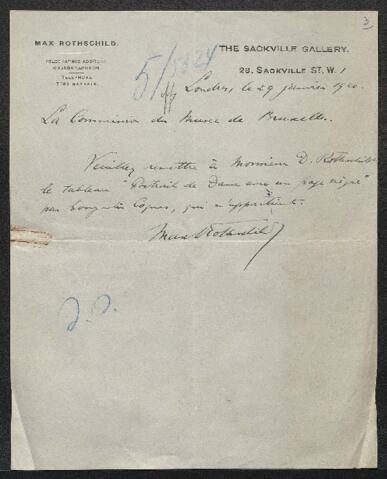 3
MAX ROTHSCHILD.
TELEGRAPHIC ADDRESS
TELEPHONE
5/5324
THE SACKVILLE GALLERY.
28, SACKVILLE ST, W. 1
Londres, le 29 janvier 1920.
La Commission du Musée de Bruxelles.
Veuillez remettre à Monsieur D. Rothschild
le tableau "Portrait de Dame avec un page nègre"
par Gonzales Coques, qui m'appartient.
Max Rothschild